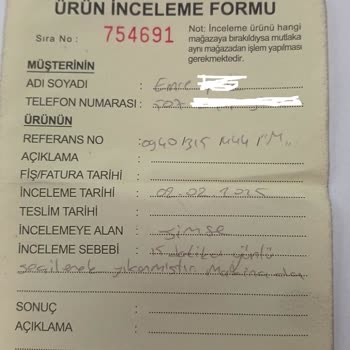 ÜRÜN İNCELEME FORMU
Sıra No : 754691
Not: İnceleme ürünü hangi
mağazaya bırakıldıysa mutlaka
aynı mağazadan işlem yapılması
gerekmektedir.
MÜŞTERİNİN
ADI SOYADI : Emre
TELEFON NUMARASI : 507
ÜRÜNÜN
REFERANS NO :
AÇIKLAMA :
FİŞ/FATURA TARİHİ :
İNCELEME TARİHİ :
TESLİM TARİHİ :
İNCELEMEYE ALAN : Simge
İNCELEME SEBEBİ : 15 dakika günlü
seçilerek yıkanmıştır
SONUÇ :
AÇIKLAMA :